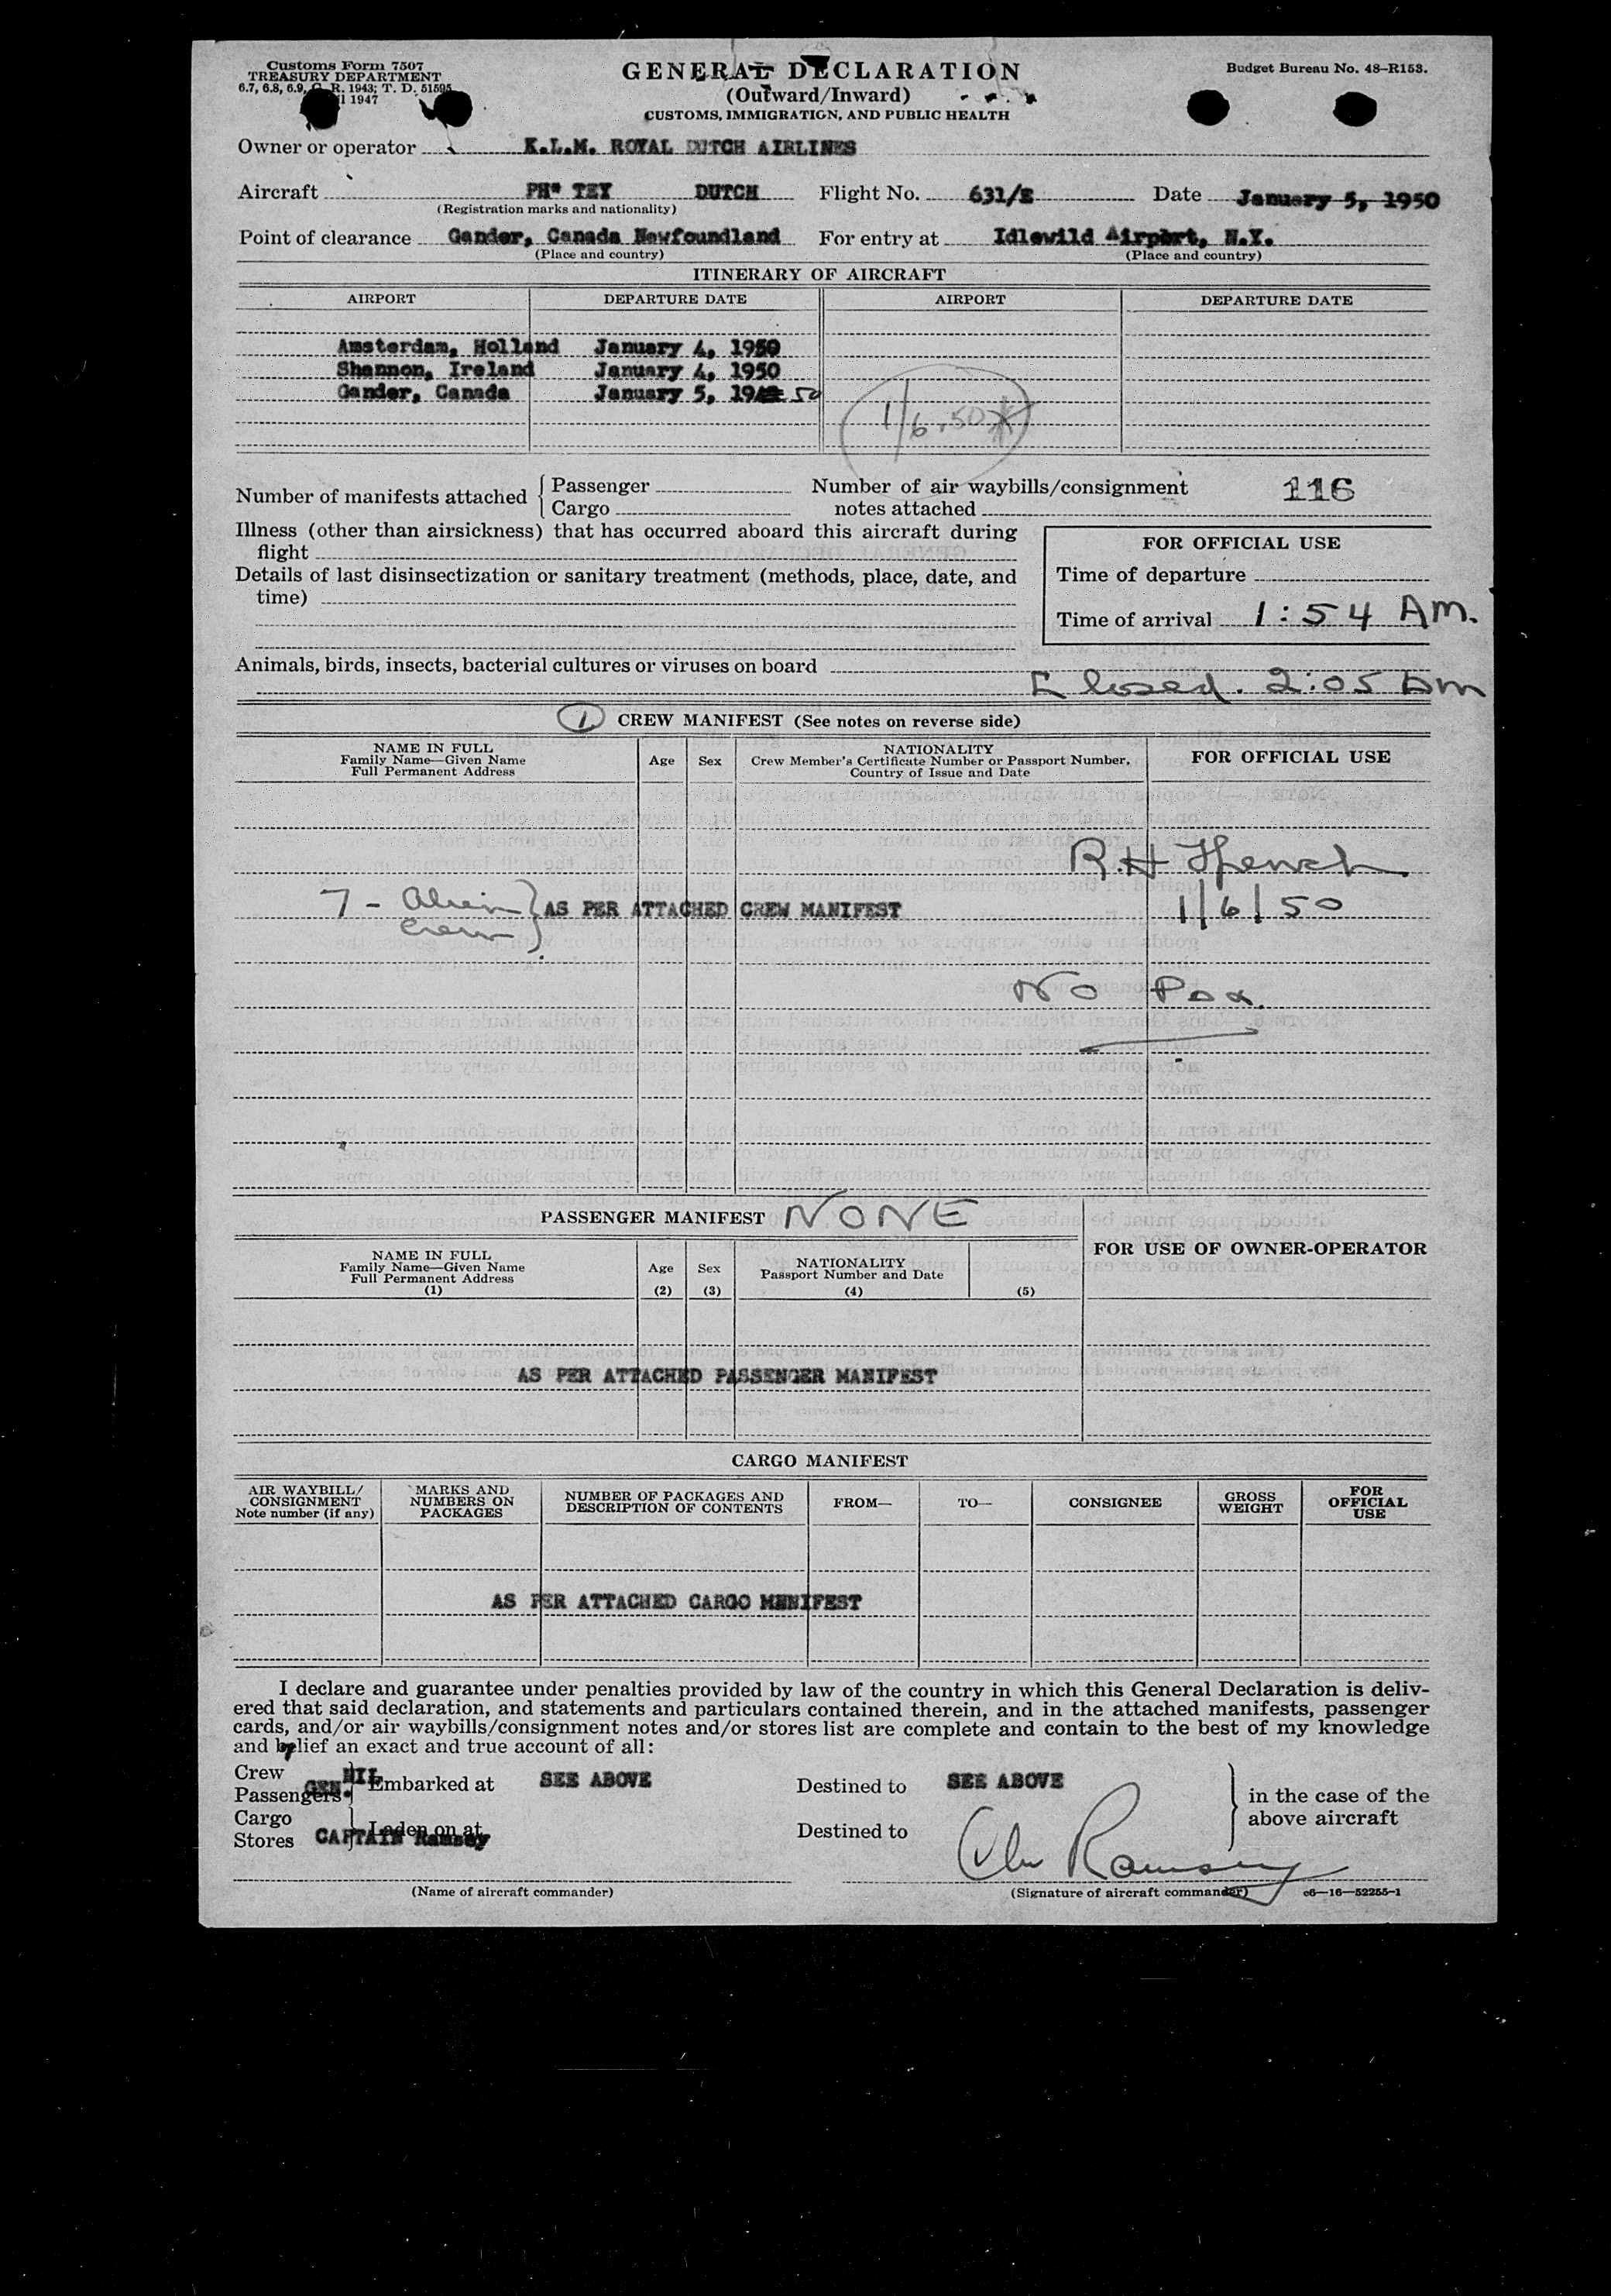 Customs Form 7507
TREASURY DEPARTMENT
6.7, 6.8, 6.9, C. R. 1943; T. D. 51595
1947
GENERAL DECLARATION
(Outward/Inward)
CUSTOMS, IMMIGRATION, AND PUBLIC HEALTH
Budget Bureau No. 48-R153.
Owner or operator K.L.M. ROYAL DUTCH AIRLINES
Aircraft PH" TEY DUTCH Flight No. 631/E Date January 5, 1950
(Registration marks and nationality)
Point of clearance Gander, Canada Newfoundland For entry at Idlewild Airport, N.Y.
(Place and country) (Place and country)
ITINERARY OF AIRCRAFT
AIRPORT DEPARTURE DATE AIRPORT DEPARTURE DATE
Amsterdam, Holland January 4, 1950
Shannon, Ireland January 4, 1950
Gander, Canada January 5, 19 50
1/6.50
Number of manifests attached { Passenger Number of air waybills/consignment 116
Cargo notes attached
Illness (other than airsickness) that has occurred aboard this aircraft during
flight
FOR OFFICIAL USE
Details of last disinsectization or sanitary treatment (methods, place, date, and
time)
Time of departure
Time of arrival 1:54 AM.
Animals, birds, insects, bacterial cultures or viruses on board
Closed. 2:05 am
1 CREW MANIFEST (See notes on reverse side)
NAME IN FULL
Family Name—Given Name
Full Permanent Address
Age Sex
NATIONALITY
Crew Member's Certificate Number or Passport Number,
Country of Issue and Date
FOR OFFICIAL USE
R.H.
7 - Alien } AS PER ATTACHED CREW MANIFEST 1/6/50
Crew
No Pax.
PASSENGER MANIFEST NONE
NAME IN FULL
Family Name—Given Name
Full Permanent Address
(1)
Age
(2)
Sex
(3)
NATIONALITY
Passport Number and Date
(4)
(5)
FOR USE OF OWNER-OPERATOR
AS PER ATTACHED PASSENGER MANIFEST
CARGO MANIFEST
AIR WAYBILL/
CONSIGNMENT
Note number (if any)
MARKS AND
NUMBERS ON
PACKAGES
NUMBER OF PACKAGES AND
DESCRIPTION OF CONTENTS
FROM— TO— CONSIGNEE
GROSS
WEIGHT
FOR
OFFICIAL
USE
AS PER ATTACHED CARGO MENIFEST
I declare and guarantee under penalties provided by law of the country in which this General Declaration is deliv-
ered that said declaration, and statements and particulars contained therein, and in the attached manifests, passenger
cards, and/or air waybills/consignment notes and/or stores list are complete and contain to the best of my knowledge
and belief an exact and true account of all:
Crew NIL
Passengers GEN Embarked at SEE ABOVE Destined to SEE ABOVE in the case of the
Cargo above aircraft
Stores CAPTAIN Ramsay Laden on at Destined to
Ramsay
(Name of aircraft commander) (Signature of aircraft commander) c6—16—52255-1